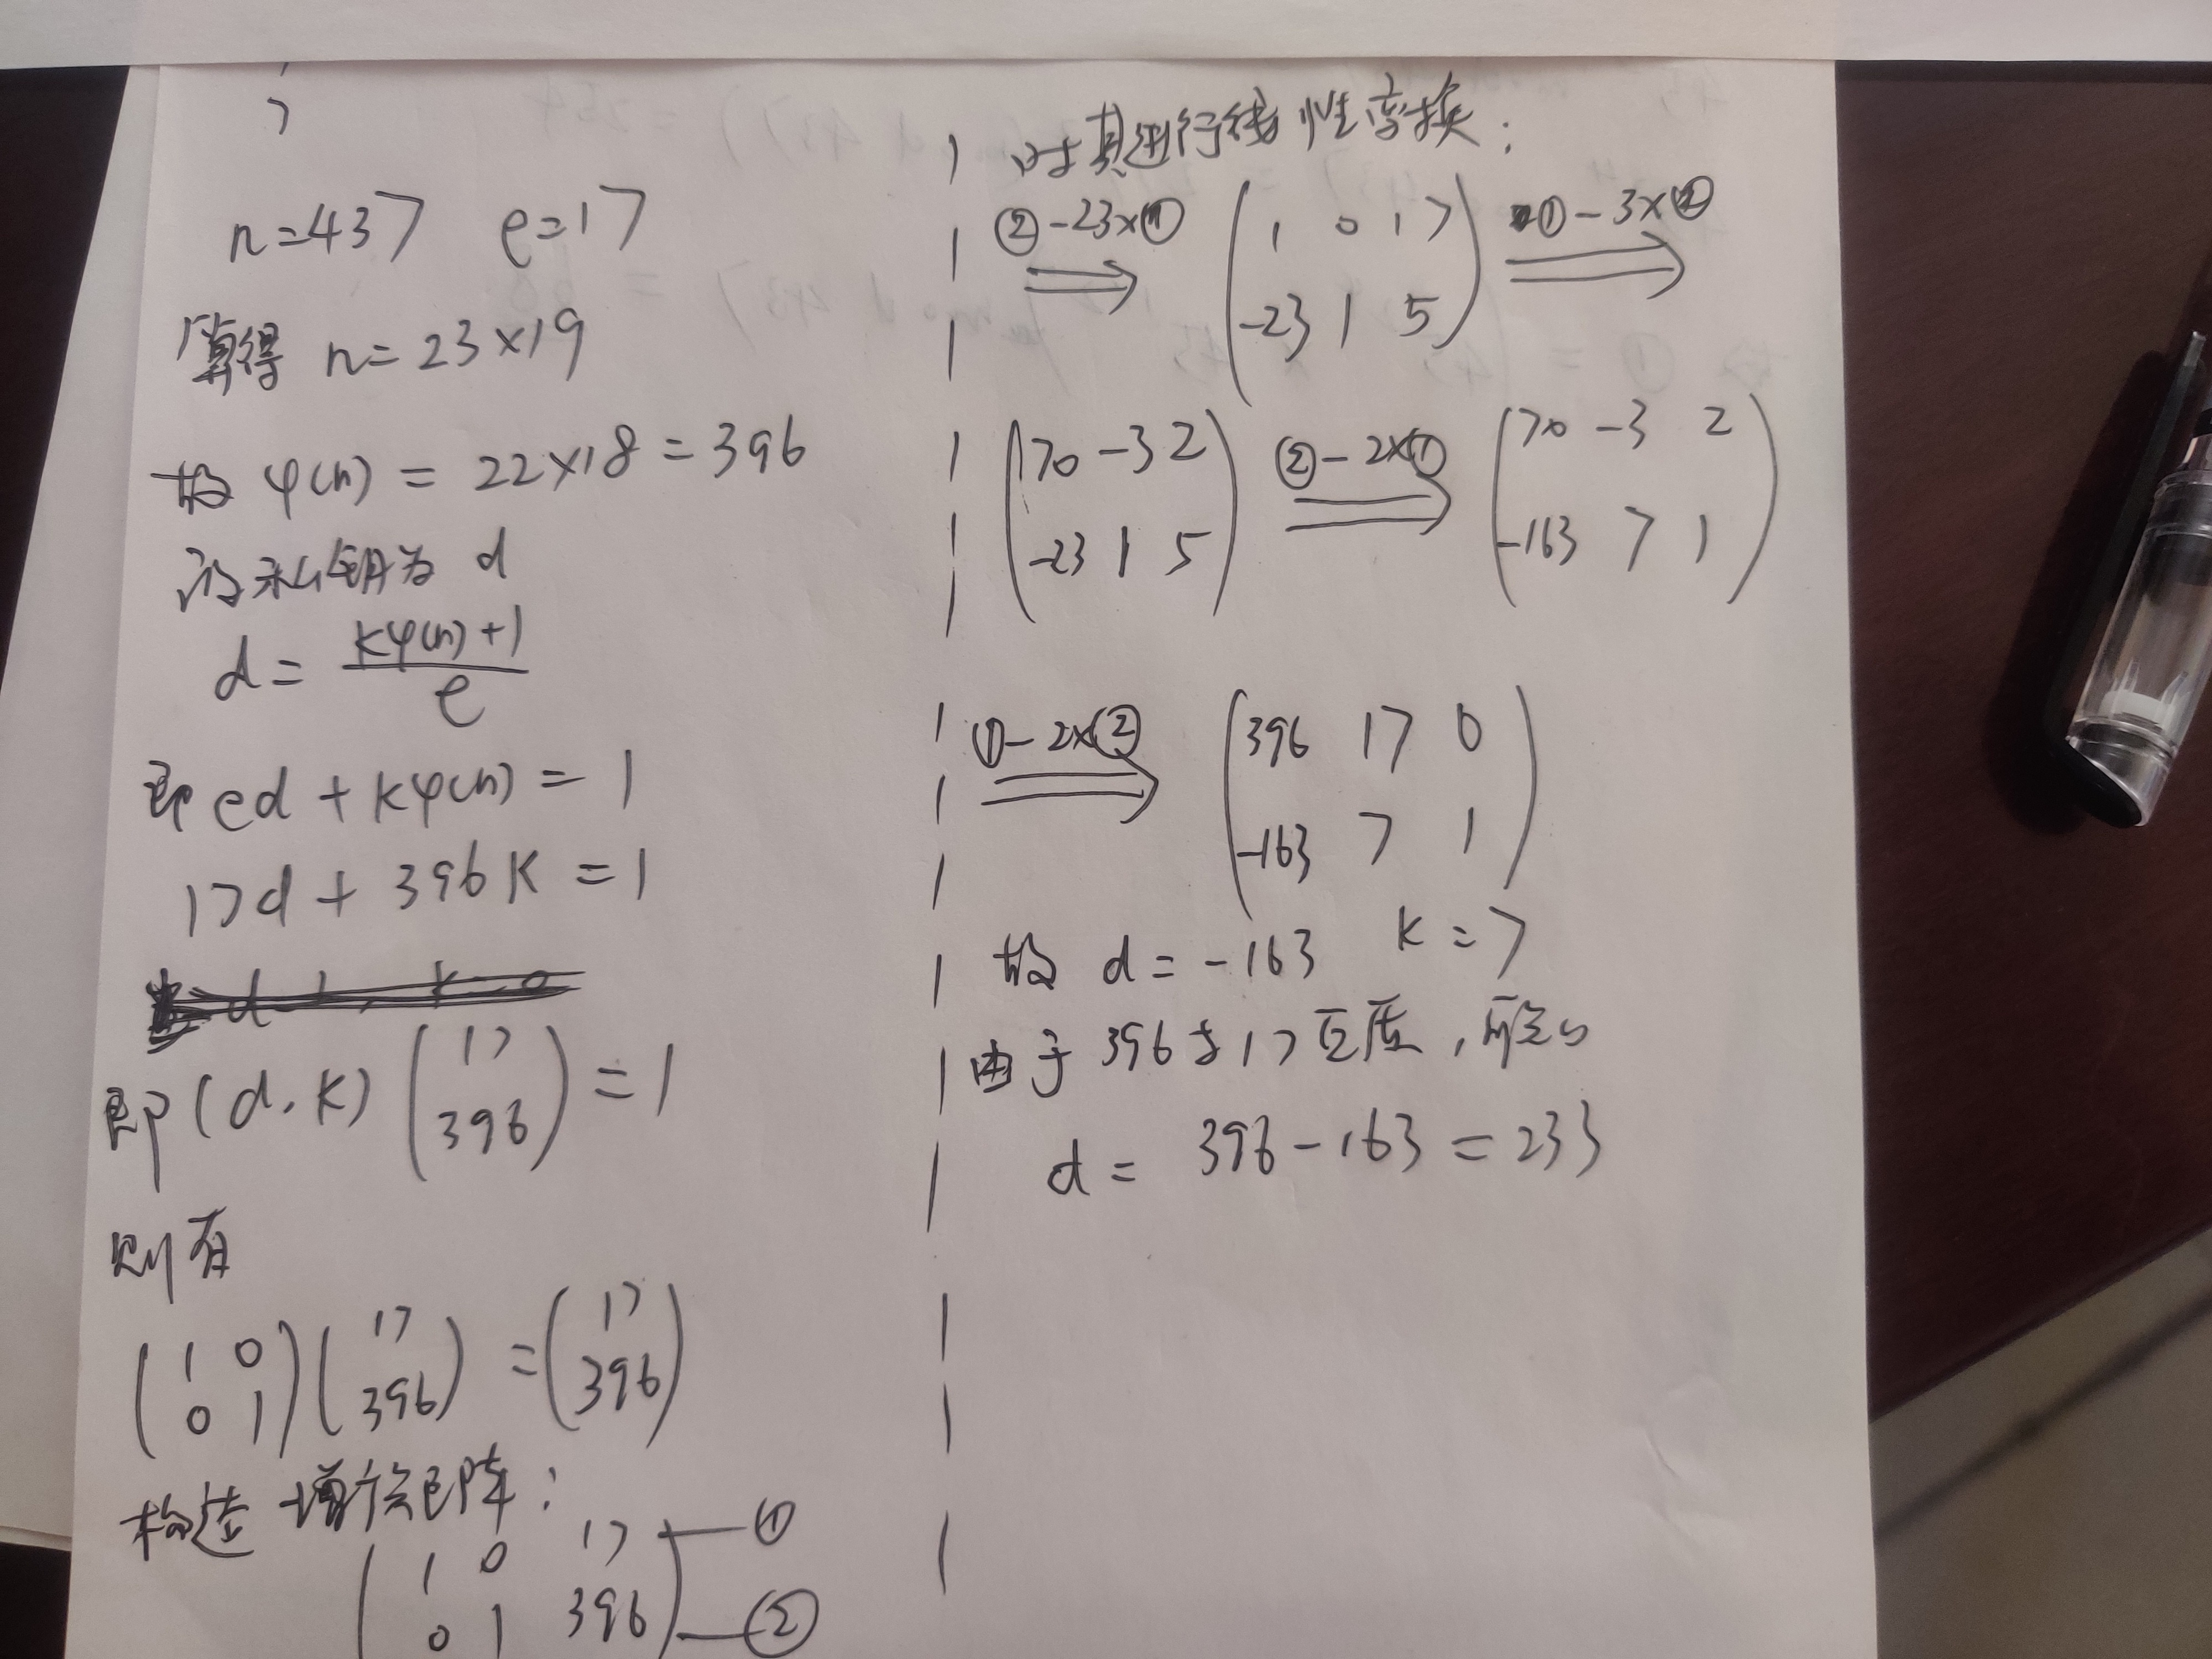 n=437 e=17
算得 n=23×19
故 φ(n) = 22×18 = 396
设私钥为 d
d = (kφ(n)+1)/e
即 ed + kφ(n) = 1
17d + 396k = 1
即 (d, k) (17 396) = 1
则有
(1 0 0 1) (17 396) = (17 396)
构造增广矩阵:
1 0 17 — ①
0 1 396 — ②
对其进行线性变换:
②-23×① ⇒ (1 0 17 ①-3×② ⇒
-23 1 5)
(70 -3 2 ②-2×① ⇒ (70 -3 2
-23 1 5) -163 7 1)
①-2×② ⇒ (396 17 0
-163 7 1)
故 d = -163 k = 7
由于 396与17互质,所以
d = 396-163 = 233